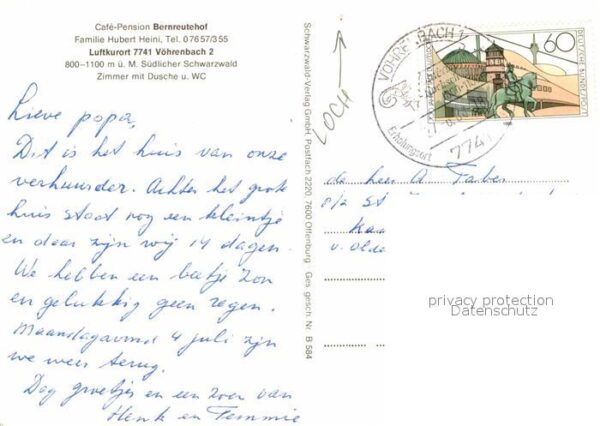 Café-Pension Bernreutehof
Familie Hubert Heini, Tel. 07657/355
Luftkurort 7741 Vöhrenbach 2
800–1100 m ü. M. Südlicher Schwarzwald
Zimmer mit Dusche u. WC
Lieve popa,
Dit is het huis van onze
verhuurder. Achter het grote
huis staat nog een kleintje
en daar zijn wij 14 dagen.
We hebben een beetje zon
en gelukkig geen regen.
Maandagavond 4 juli zijn
we weer terug.
Dag groetjes en een zoen van
Henk en Temmie
Schwarzwald-Verlag GmbH, Postfach 2220, 7600 Offenburg · Ges. gesch. Nr. B 584
LOCH
VÖHRENBACH 1
Erholungsort
7741
60
DEUTSCHE BUNDESPOST
de heer A Taber
p/a St
Kaa
v. Olde
privacy protection
Datenschutz